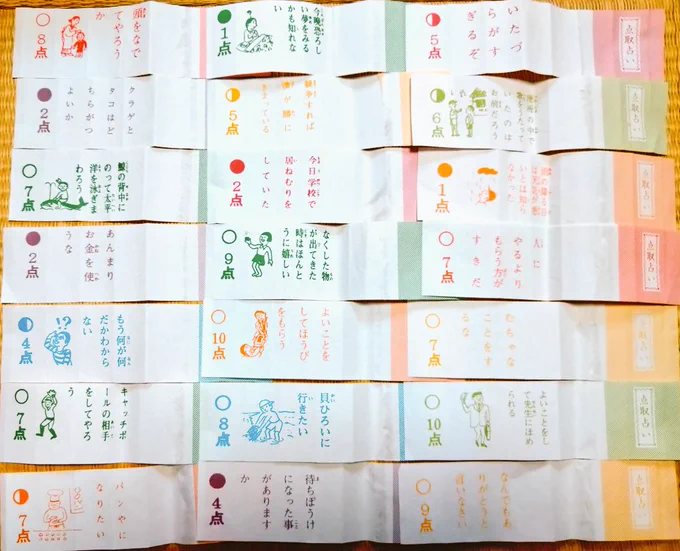 点取占い
いたづ
らがす
ぎるぞ
5点
今晩恐ろし
い夢をみる
かも知れな
い
1点
頭をなで
てやろう
か
8点
点取占い
の中で
歌をうたって
いたのは
お前だろう
6点
競争すれば
僕が勝に
きまっている
5点
クラゲと
タコはど
ちらがつ
よいか
2点
点取占い
雨の降る日
は天気が悪
いとは知ら
なかった
1点
今日学校で
居ねむりを
していた
2点
鯨の背中に
のって太平
洋を泳ぎま
わろう
7点
点取占い
人に
やるより
もらう方が
すきだ
7点
なくした物
が出てきた
時はほんと
うに嬉しい
9点
あんまり
お金を使
うな
2点
点取占い
むちゃな
ことをす
るな
7点
よいことを
してほうび
をもらう
10点
!?
もう何が何
だかわから
ない
4点
点取占い
よいことをし
て先生にほめ
られる
10点
貝ひろいに
行きたい
8点
キャッチボ
ールの相手
をしてやろ
う
7点
点取占い
なんでもあ
りがとうと
言いなさい
9点
待ちぼうけ
になった事
があります
か
4点
パンやに
なりたい
7点